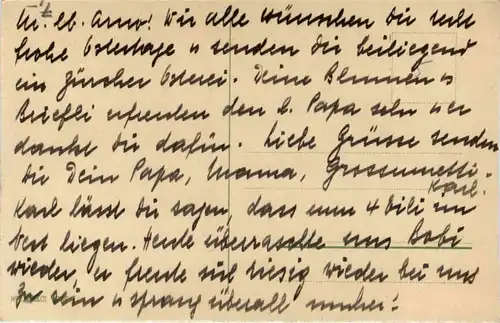 M. lb. Arno! Wir alle wünschen dir recht
frohe Ostertage u senden dir beiliegend
ein Zürcher Osterei. Deine Blumen u
Briefli erfreuten den l. Papa sehr u er
dankt dir dafür. Liebe Grüsse senden
dir Dein Papa, Mamma, Grossmuetti
Karl.
Karl lässt dir sagen, dass nun 4 Eili im
Nest liegen. Heute überraschte uns Bobi
wieder, u freute sich riesig wieder bei uns
zu sein u sprang überall umher!